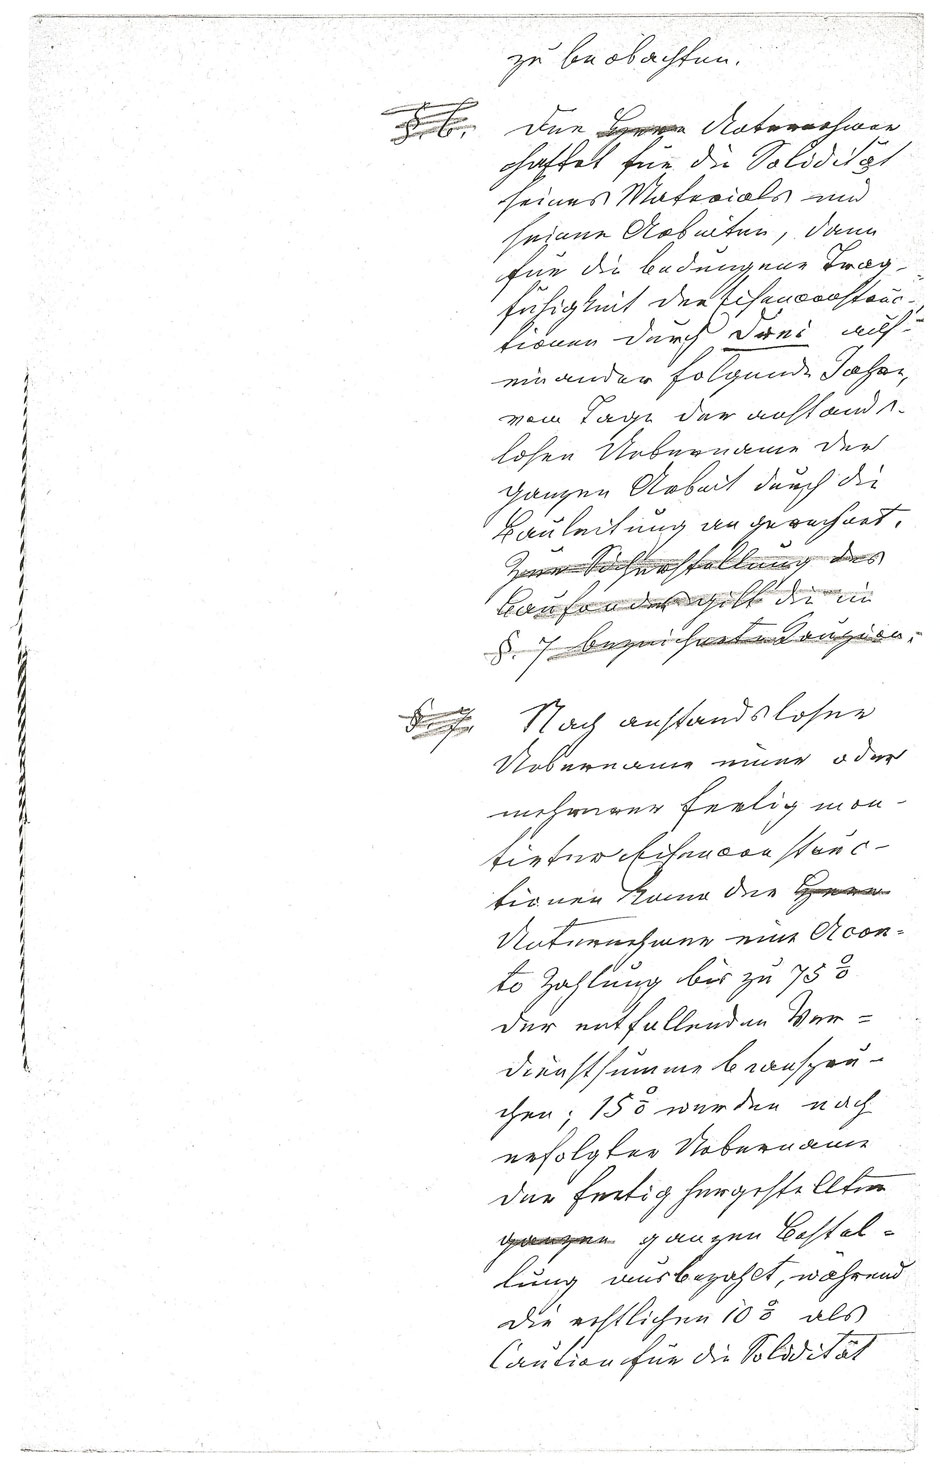 zu beobachten.
§. 6. Der Herr Unternehmer
haftet für die Solidität
seines Materials und
seiner Arbeiten, dann
für die bedungene Trag-
fähigkeit der Eisenconstruc-
tionen durch drei auf-
einander folgende Jahre,
vom Tage der anstands-
losen Uebername der
ganzen Arbeit durch die
Bauleitung angerechnet.
Zur Sicherstellung des
Baufondes gilt die im
§. 7 bezeichnete Kauzion.
§. 7. Nach anstandsloser
Uebername einer oder
mehrerer fertig mon-
tirter Eisenconstruc-
tionen kann der Herr
Unternehmer eine Acon-
to Zahlung bis zu 75 %
der entfallenden Ver=
dienstsumme beanspru-
chen; 15 % werden nach
erfolgter Uebername
der fertig hergestellten
ganzen ganzen Bestel=
lung ausbezahlt, während
die restlichen 10 % als
Caution für die Solidität